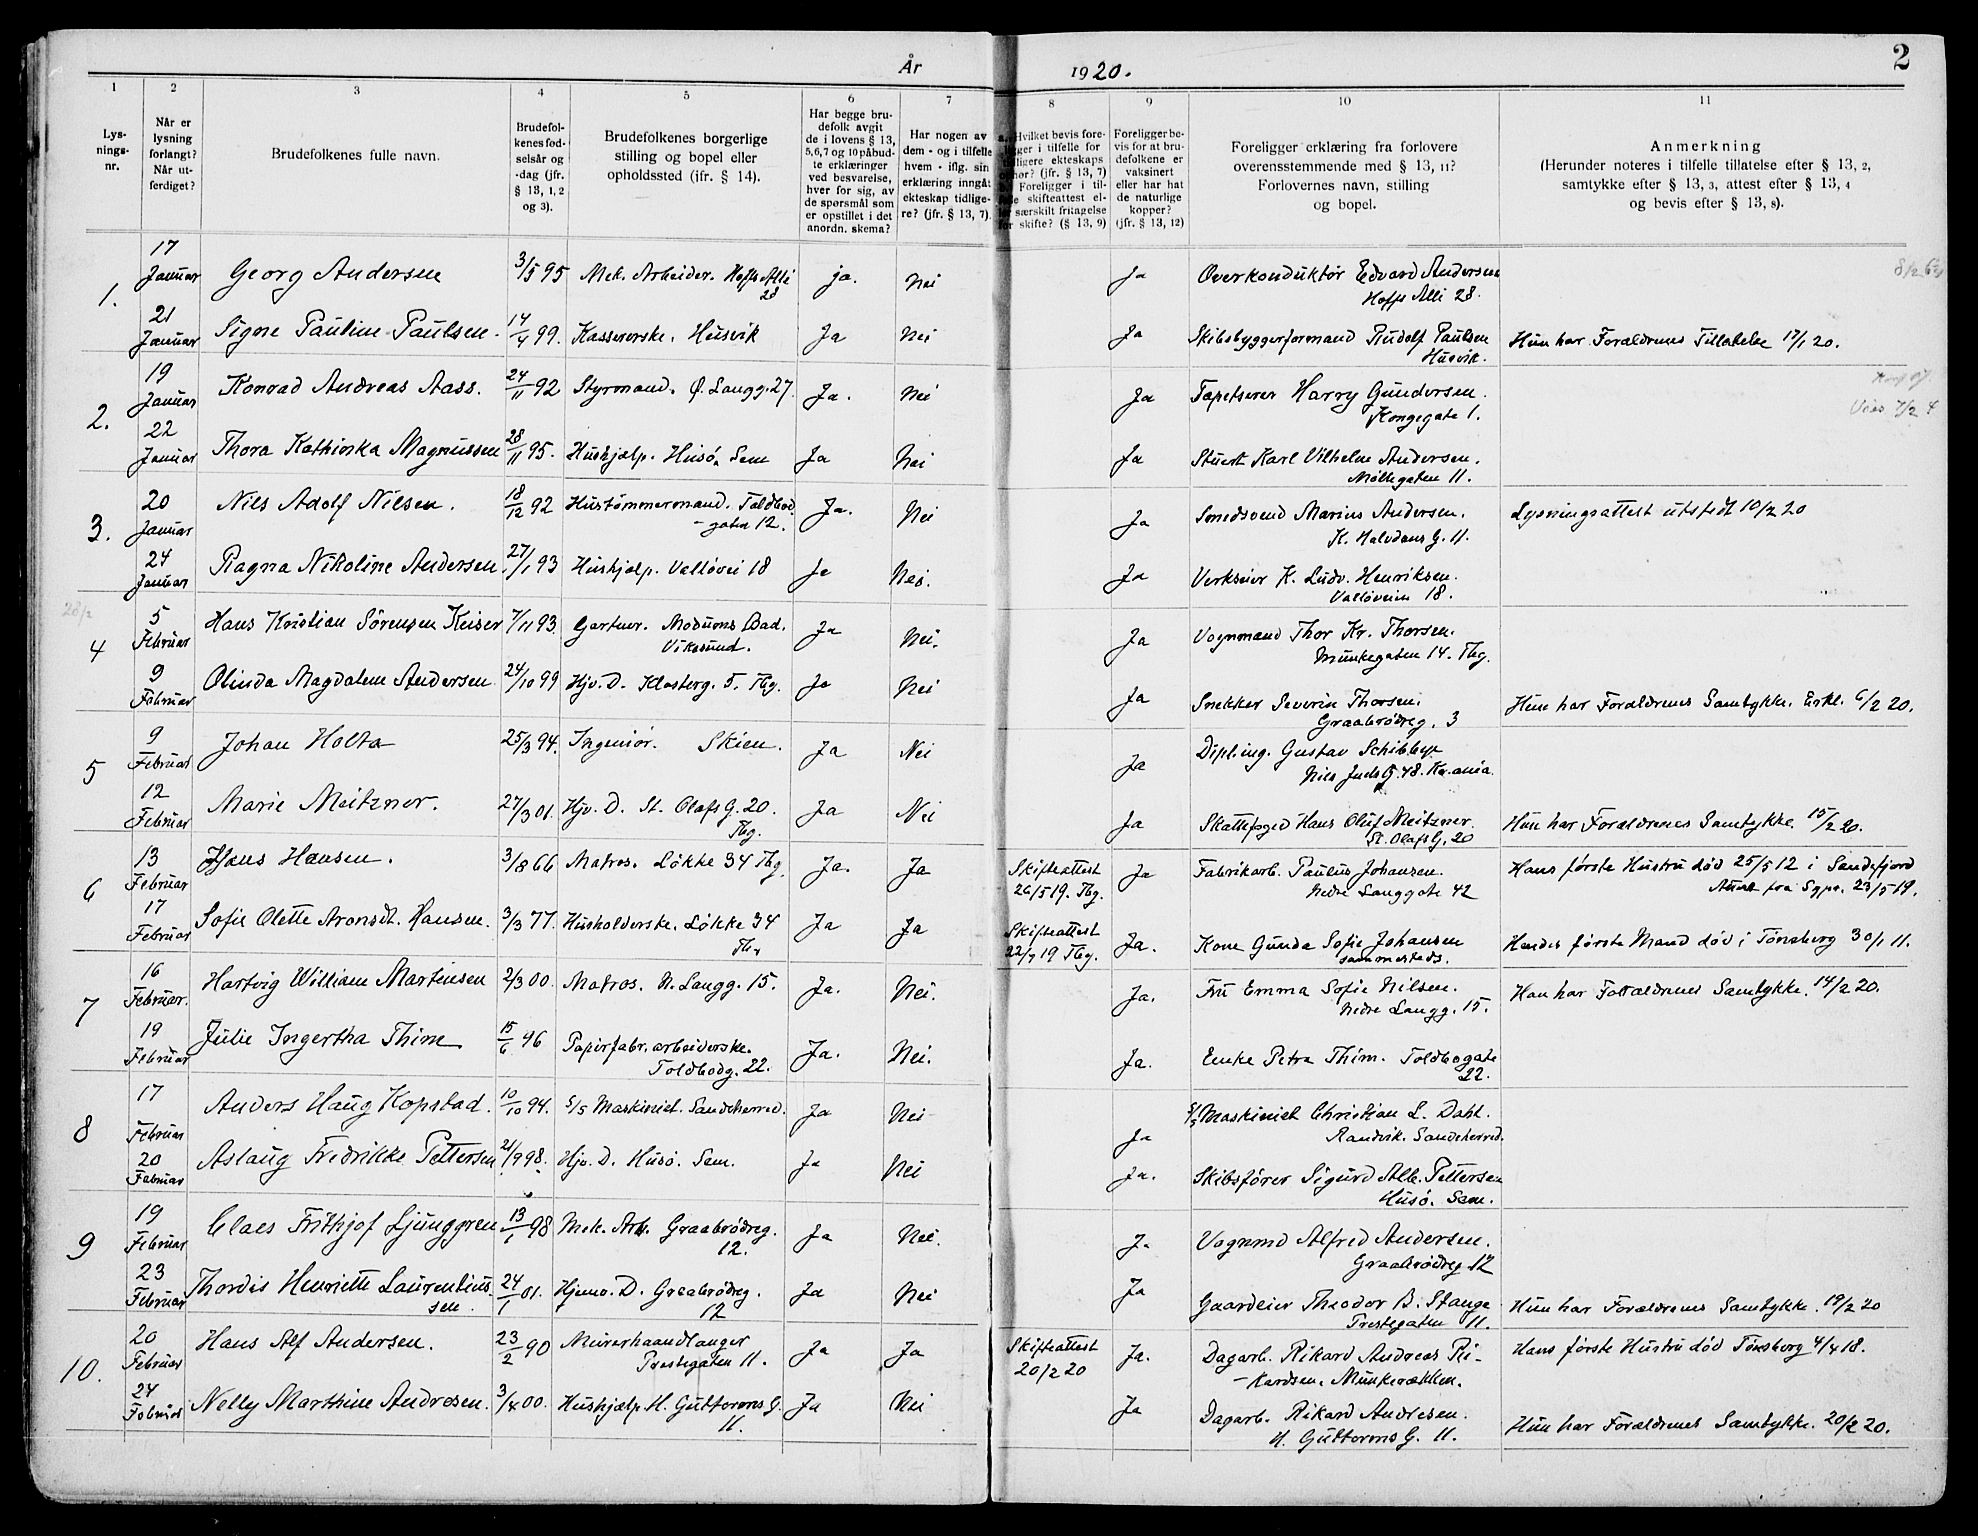 År 1920.
2
1 2 3 4 5 6 7 8 9 10 11
Lys-
nings-
nr.
Når er
lysning
forlangt?
Når ut-
ferdiget?
Brudefolkenes fulle navn.
Brudefol-
kenes fød-
selsår og
-dag (jfr.
§ 13, 1, 2
og 3).
Brudefolkenes borgerlige
stilling og bopel eller
opholdssted (ifr. § 14).
Har begge bru-
defolk avgit
de i lovens § 13,
5,6,7 og 10 påbud-
te erklæringer
ved besvarelse,
hver for sig, av
de spørsmål som
er opstillet i det
anordn. skema?
Har nogen av
dem - og i tilfelle
hvem - iflg. sin
erklæring inngåt
ekteskap tidlige-
re? (jfr. § 13, 7).
Hvilket bevis fore-
ligger i tilfelle for
tidligere ekteskaps
ophør? (jfr. § 13, 7)
Foreligger i til-
felle skifteattest el-
ler særskilt fritagelse
for skifte? (§ 13, 9)
Foreligger be-
vis for at bru-
defolkene er
vaksinert
eller har hat
de naturlige
kopper?
(jfr. § 13, 12)
Foreligger erklæring fra forlovere
overensstemmende med § 13, 11?
Forlovernes navn, stilling
og bopel.
Anmerkning
(Herunder noteres i tilfelle tillatelse efter § 13, 2,
samtykke efter § 13, 3, attest efter § 13, 4
og bevis efter § 13, 8).
1. 17 Januar Georg Andersen 3/5 95 Mek. Arbeider. Hoffs Alli 28 ja. Nei Ja Overkonduktør Edvard Andersen
Hoffs Alli 28.
21 Januar Signe Pauline Paulsen. 14/4 99. Kassererske. Husvik Ja Nei Ja Skibsbyggerformand Rudolf Paulsen Hun har Forældrenes Tilladelse 17/1 20.
Husvik.
2. 19 Januar Konrad Andreas Aass. 24/11 92 Styrmand. Ø. Langg. 27 Ja. Nei Ja Tapetserer Harry Gundersen.
Kongegate 1.
22 Januar Thora Kathinka Magnussen 28/11 95. Hushjælp. Husø. Sem Ja Nei Ja Stuert Karl Vilhelm Andersen.
Møllegaten 11.
3. 20 Januar Nils Adolf Nilsen. 18/12 92 Hustømmermand. Toldbod- Ja. Nei Ja Smedsvend Marius Andersen. Lysningsattest utstedt 10/2 20
gaten 12. K. Halvdans G. 11.
24 Januar Ragna Nikoline Andersen 27/1 93 Hushjælp. Valløvei 18 Ja Nei. Ja Verkseier K. Ludv. Henriksen.
Valløveien 18.
28/2
4 5 Februar Hans Kristian Sörensen Keiser 7/11 93. Gartner. Modums Bad. Ja Nei. Ja Vognmand Thor Kr. Thorsen.
Vikesund. Munkegaten 14. Tbg.
9 Februar Olinda Magdalene Andersen 24/10 99 Hjv. D. Klosterg. 5. Tbg. Ja Nei Ja Snekker Severin Thorsen. Hun har Forældrenes Samtykke. Erkl. 6/2 20.
Graabrødreg. 3
5 9 Februar Johan Holta 25/3 94. Ingeniør. Skien. Ja Nei Ja Dipl.ing. Gustav Schibbye
Niels Juels G. 48. Kr.ania.
12 Februar Marie Meitzner. 27/3 01. Hjv. D. St. Olafs G. 20. Ja Nei Ja Skattefoged Hans Oluf Meitzner. Hun har Forældrenes Samtykke. 15/2 20.
Tbg. St. Olafs G. 20
6 13 Februar Hans Hansen. 3/8 66 Matros. Løkke 34 Tbg. Ja. Ja Skifteattest Ja Fabrikarb. Paulus Johansen. Hans første Hustru død 25/5 12 i Sandefjord
26/5 19. Tbg. Nedre Langgate 42 Attest fra Sgpr. 23/5 19.
17 Februar Sofie Olette Aronsdt. Hansen. 3/3 77. Husholderske. Løkke 34 Ja Ja Skifteattest Ja. Kone Gunda Sofie Johansen Hendes første Mand død i Tønsberg 30/1 11.
Tbg 22/9 19 Tbg. sammesteds.
7 16 Februar. Hartvig William Martinsen 2/3 00. Matros. N. Langg. 15. Ja. Nei. Ja. Fru Emma Sofie Nilsen. Han har Forældrenes Samtykke. 14/2 20.
Nedre Langg. 15.
19 Februar Julie Ingertha Thime 15/6 96 Papirfabr. arbeiderske. Ja. Nei. Ja. Enke Petra Thim. Toldbogate
Toldbodg. 22. 22.
8 17 Februar Anders Haug Kopstad. 10/10 94. S/S Maskinist. Sandeherred. Ja Nei Ja S/S Maskinist Christian L. Dahl.
Ranvik. Sandeherred.
20 Februar Aslaug Fredrikke Pettersen 21/9 98. Hjv. D. Husø. Sem. Ja Nei Ja. Skibsfører Sigurd Alb. Pettersen
Husø. Sem.
9 19 Februar Claes Frithjof Ljunggren 13/1 98 Mek. Arb. Graabrødreg. Ja Nei. Ja Vognmd Alfred Andersen.
12. Graabrødreg 12
23 Februar Thordis Henriette Laurentius- 24/1 01. Hjemv. D. Graabrødreg. Ja Nei Ja Gaardeier Theodor B. Stange Hun har Forældrenes Samtykke. 19/2 20
sen. 12 Prestegaten 11.
10. 20 Februar Hans Alf Andersen. 23/2 90 Murerhaandlanger Ja Ja Skifteattest Ja. Dagarb. Rikard Andreas Ri- Hans første Hustru død Tønsberg 4/4 18.
Prestegaten 11. 20/2 20 kardsen. Munkerækken.
24 Februar Nelly Marthine Andresen. 3/4 00. Hushjælp H. Guttorms G. Ja Nei Ja Dagarb. Rikard Andresen. Hun har Forældrenes Samtykke. 20/2 20.
11. H. Guttorms G. 11.